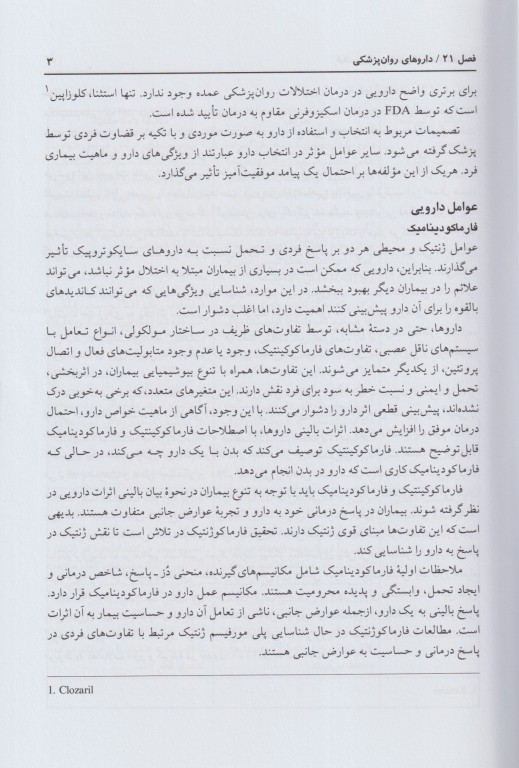 فصل ۲۱ / داروهای روان‌پزشکی ۳
برای برتری واضح دارویی در درمان اختلالات روان‌پزشکی عمده وجود ندارد. تنها استثنا، کلوزاپین۱
است که توسط FDA در درمان اسکیزوفرنی مقاوم به درمان تأیید شده است.
تصمیمات مربوط به انتخاب و استفاده از دارو به صورت موردی و با تکیه بر قضاوت فردی توسط
پزشک گرفته می‌شود. سایر عوامل مؤثر در انتخاب دارو عبارتند از ویژگی‌های دارو و ماهیت بیماری
فرد. هریک از این مؤلفه‌ها بر احتمال یک پیامد موفقیت‌آمیز تأثیر می‌گذارد.
عوامل دارویی
فارماکودینامیک
عوامل ژنتیک و محیطی هر دو بر پاسخ فردی و تحمل نسبت به داروهای سایکوتروپیک تأثیر
می‌گذارند. بنابراین، دارویی که ممکن است در بسیاری از بیماران مبتلا به اختلال مؤثر نباشد، می‌تواند
علائم را در بیماران دیگر بهبود ببخشد. در این موارد، شناسایی ویژگی‌هایی که می‌توانند کاندیدهای
بالقوه را برای آن دارو پیش‌بینی کنند اهمیت دارد، اما اغلب دشوار است.
داروها، حتی در دستهٔ مشابه، توسط تفاوت‌های ظریف در ساختار مولکولی، انواع تعامل با
سیستم‌های ناقل عصبی، تفاوت‌های فارماکوکینتیک، وجود یا عدم وجود متابولیت‌های فعال و اتصال
پروتئین، از یکدیگر متمایز می‌شوند. این تفاوت‌ها، همراه با تنوع بیوشیمیایی بیماران، در اثربخشی،
تحمل و ایمنی و نسبت خطر به سود برای فرد نقش دارند. این متغیرهای متعدد، که برخی به‌خوبی درک
نشده‌اند، پیش‌بینی قطعی اثر دارو را دشوار می‌کنند. با این وجود، آگاهی از ماهیت خواص دارو، احتمال
درمان موفق را افزایش می‌دهد. اثرات بالینی داروها، با اصطلاحات فارماکوکینتیک و فارماکودینامیک
قابل توضیح هستند. فارماکوکینتیک توصیف می‌کند که بدن با یک دارو چه می‌کند، در حالی که
فارماکودینامیک کاری است که دارو در بدن انجام می‌دهد.
فارماکوکینتیک و فارماکودینامیک باید با توجه به تنوع بیماران در نحوهٔ بیان بالینی اثرات دارویی در
نظر گرفته شوند. بیماران در پاسخ درمانی خود به دارو و تجربهٔ عوارض جانبی متفاوت هستند. بدیهی
است که این تفاوت‌ها مبنای قوی ژنتیک دارند. تحقیق فارماکوژنتیک در تلاش است تا نقش ژنتیک در
پاسخ به دارو را شناسایی کند.
ملاحظات اولیهٔ فارماکودینامیک شامل مکانیسم‌های‌گیرنده، منحنی دُز ـ پاسخ، شاخص درمانی و
ایجاد تحمل، وابستگی و پدیده محرومیت هستند. مکانیسم عمل دارو در فارماکودینامیک قرار دارد.
پاسخ بالینی به یک دارو، ازجمله عوارض جانبی، ناشی از تعامل آن دارو و حساسیت بیمار به آن اثرات
است. مطالعات فارماکوژنتیک در حال شناسایی پلی مورفیسم ژنتیک مرتبط با تفاوت‌های فردی در
پاسخ درمانی و حساسیت به عوارض جانبی هستند.
1. Clozaril